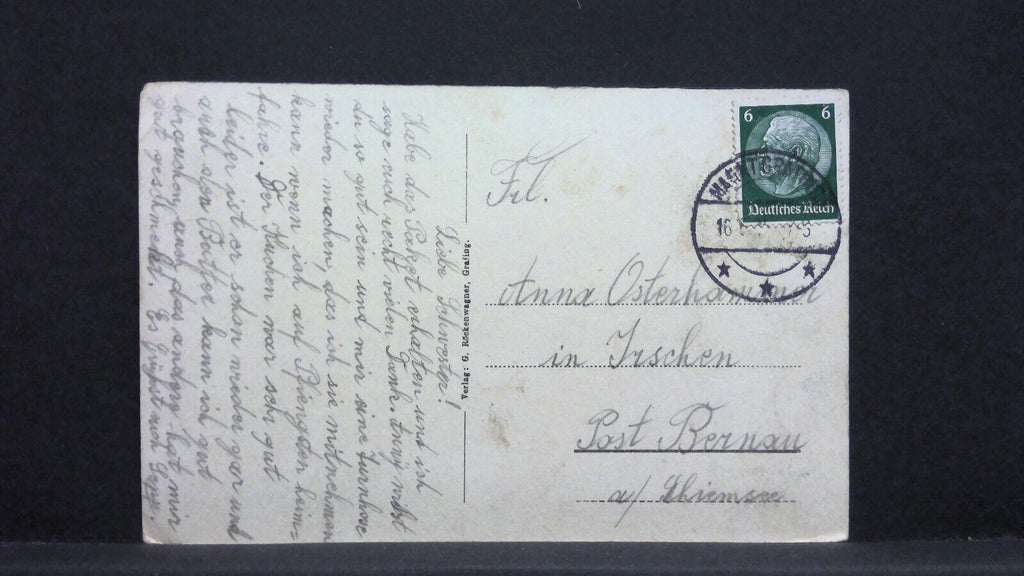 Liebe Schwester!
Habe das Paket erhalten und ich
sage euch recht vielen Dank.
du so gut sein und mir eine Turnhose
wieder machen, das ich sie mitnehmen
kann wenn ich auf Pfiengsten heim=
fahre. Der Kuchen war sehr gut
leider ist er schon wieder gar und
auch den Butter kann ich gut
brauchen, auch das andere hat mir
gut geschmeckt. Es grüßt euch Sepp.
Verlag: G. Röckenwagner, Grafing.
Frl.
Anna Osterhammer
in Irschen
Post Bernau
a/ Chiemsee
6 6
Deutsches Reich
MARKT
16